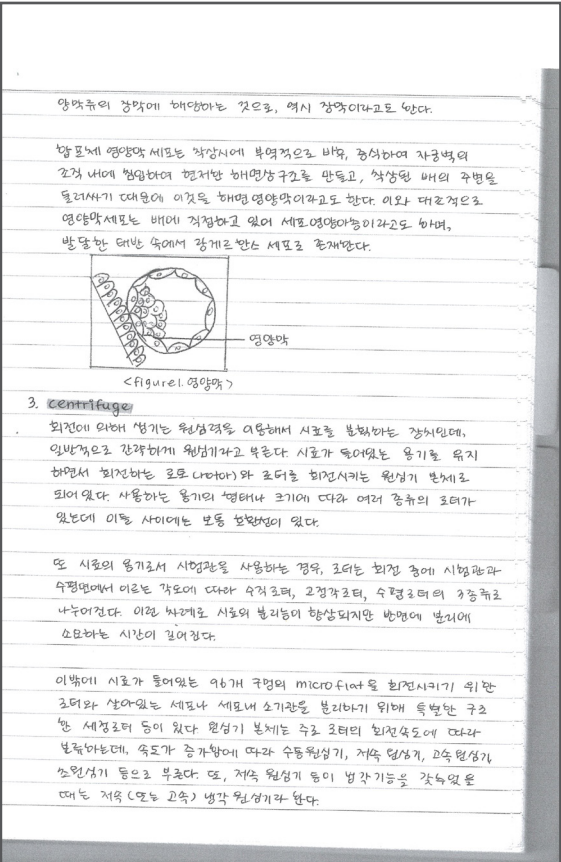 양막류의 장막에 해당하는 것으로, 역시 장막이라고도 한다.
합포체 영양막 세포는 착상시에 부역적으로 비후, 증식하여 자궁벽의
조직 내에 침입하여 현저한 해면상구조를 만들고, 착상된 배의 주변을
둘러싸기 때문에 이것을 해면영양막이라고도 한다. 이와 대조적으로
영양막세포는 배에 직접하고 있어 세포영양아층이라고도 하며,
발달한 태반 속에서 랑게르한스 세포로 존재한다.
영양막
<figure1. 영양막>
3. centrifuge
회전에 의해 생기는 원심력을 이용해서 시료를 분획하는 장치인데,
일반적으로 간략하게 원심기라고 부른다. 시료가 들어있는 용기를 유지
하면서 회전하는 로터와 로터를 회전시키는 원심기 본체로
되어있다. 사용하는 용기의 형태나 크기에 따라 여러 종류의 로터가
있는데 이들 사이에는 보통 호환성이 있다.
또 시료의 용기로서 시험관을 사용하는 경우, 로터는 회전 중에 시험관과
수평면에서 이르는 각도에 따라 수직로터, 고정각로터, 수평로터의 3종류로
나누어진다. 이런 차례로 시료의 분리능이 향상되지만 반면에 분리에
소요하는 시간이 길어진다.
이밖에 시료가 들어있는 96개 구멍의 microflat을 회전시키기 위한
로터와 살아있는 세포나 세포내 소기관을 분리하기 위해 특별한 구조
한 세정로터 등이 있다 원심기 본체는 주로 로터의 회전속도에 따라
분류하는데, 속도가 증가함에 따라 수동원심기, 저속 원심기, 고속원심기,
초원심기 등으로 부른다. 또, 저속 원심기 등이 냉각기능을 갖추었을
때는 저속(또는 고속) 냉각 원심기라 한다.